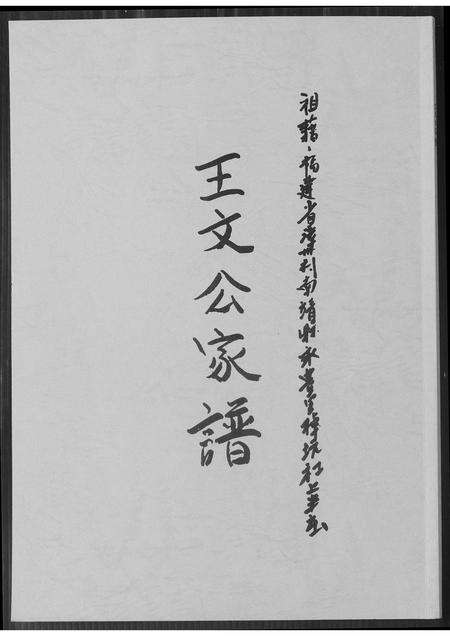 祖籍、福建省漳州南靖縣永豐里梓坑社上半
王文公家譜